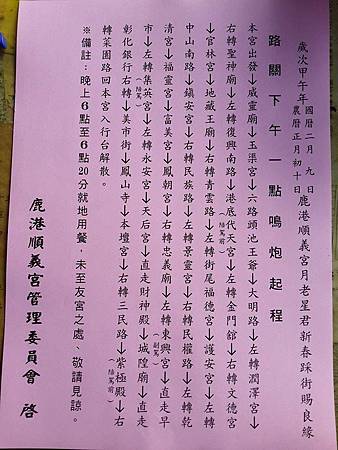 歲次甲午年國曆二月九日農曆正月初十日鹿港順義宮月老星君新春踩街賜良緣
路關下午一點鳴炮起程
本宮出發↓威靈廟↓玉渠宮↓六路頭池王爺↓大明路↓左轉潤澤宮↓
右轉聖神廟↓左轉復興南路↓港底代天宮↓左轉金門館↓右轉文德宮
↓官林宮↓地藏王廟↓右轉青雲路↓左轉街尾福德宮↓護安宮↓左轉
中山南路↓鎮安宮↓右轉民族路↓左轉景靈宮↓右轉民權路↓左轉乾
清宮↓福靈宮↓富美宮↓鳳朝宮↓右轉忠義廟↓左轉東興宮↓直走早
市↓左轉集英宮↓左轉永安宮↓天后宮↓直走財神殿↓城隍廟↓直走
彰化銀行右轉↓美市街↓鳳山寺↓本壇宮↓右轉三民路↓紫極殿↓右
轉菜園路回本宮入行台解散。
※備註：晚上6點至6點20分就地用餐，未至友宮之處、敬請見諒。
鹿港順義宮管理委員會 啓